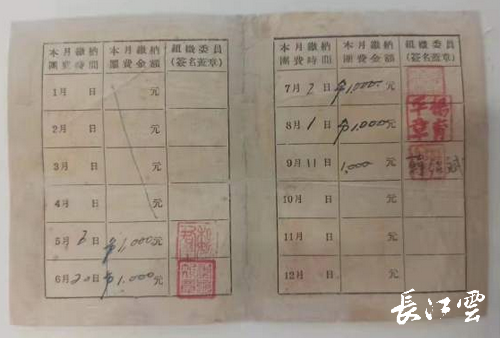 本月繳納
團費時間
本月繳納
團費金額
組織委員
(簽名蓋章)
1月 日 元
2月 日 元
3月 日 元
4月 日 元
5月 3日 1,000元
6月20日 1,000元
本月繳納
團費時間
本月繳納
團費金額
組織委員
(簽名蓋章)
7月 2日 1,000元
8月 1日 1,000元
9月 11日 1,000元
10月 日 元
11月 日 元
12月 日 元
長江雲